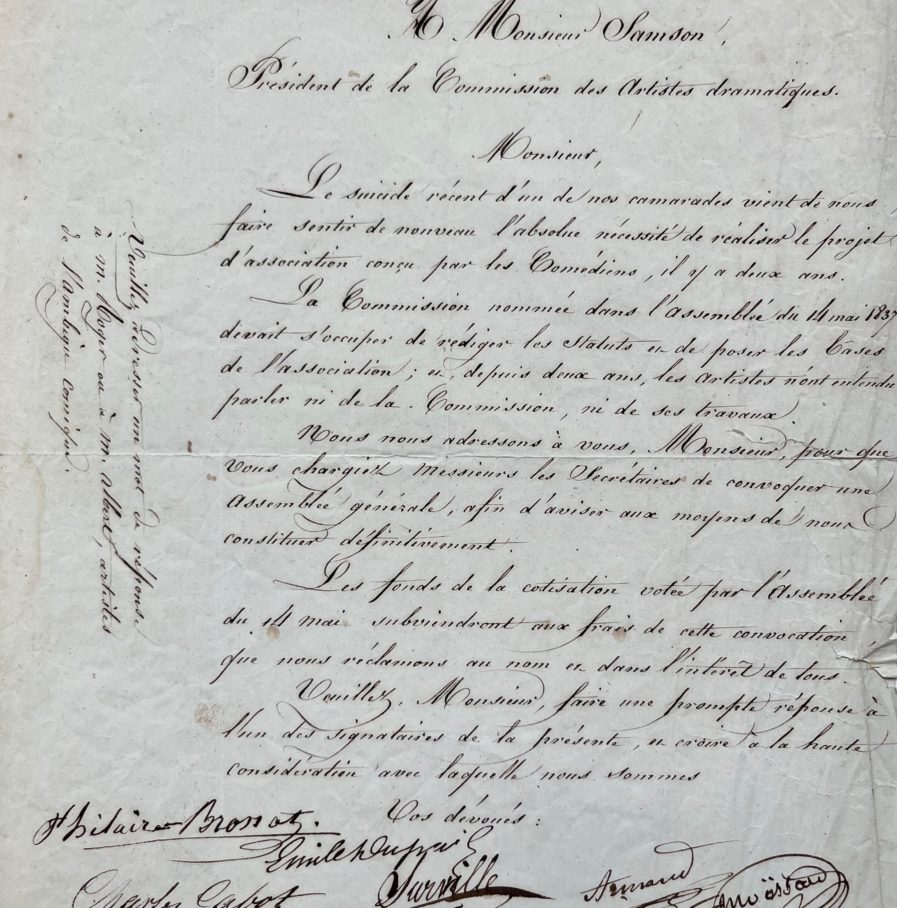 A Monsieur Samson,
Président de la Commission des Artistes dramatiques.
Monsieur,
Le suicide récent d'un de nos camarades vient de nous
faire sentir de nouveau l'absolue nécessité de réaliser le projet
d'association conçu par les Comédiens, il y a deux ans.
La Commission nommée dans l'assemblée du 14 mai 1837
devait s'occuper de rédiger les Statuts et de poser les bases
de l'association ; et, depuis deux ans, les artistes n'ont entendu
parler ni de la Commission, ni de ses travaux.
Nous nous adressons à vous, Monsieur, pour que
vous chargiez Messieurs les Secrétaires de convoquer une
assemblée générale, afin d'aviser aux moyens de nous
constituer définitivement.
Les fonds de la cotisation votée par l'assemblée
du 14 mai subviendront aux frais de cette convocation
que nous réclamons au nom et dans l'intérêt de tous.
Veuillez, Monsieur, faire une prompte réponse à
l'un des signataires de la présente, et croire à la haute
considération avec laquelle nous sommes
Vos dévoués :
Veuillez adresser un mot de réponse
à M. ou à M. Albert, artistes
de l'ambigu comique.
St hilaire Bronot.
Emile Dupuis
Charles Cabot Surville Armand